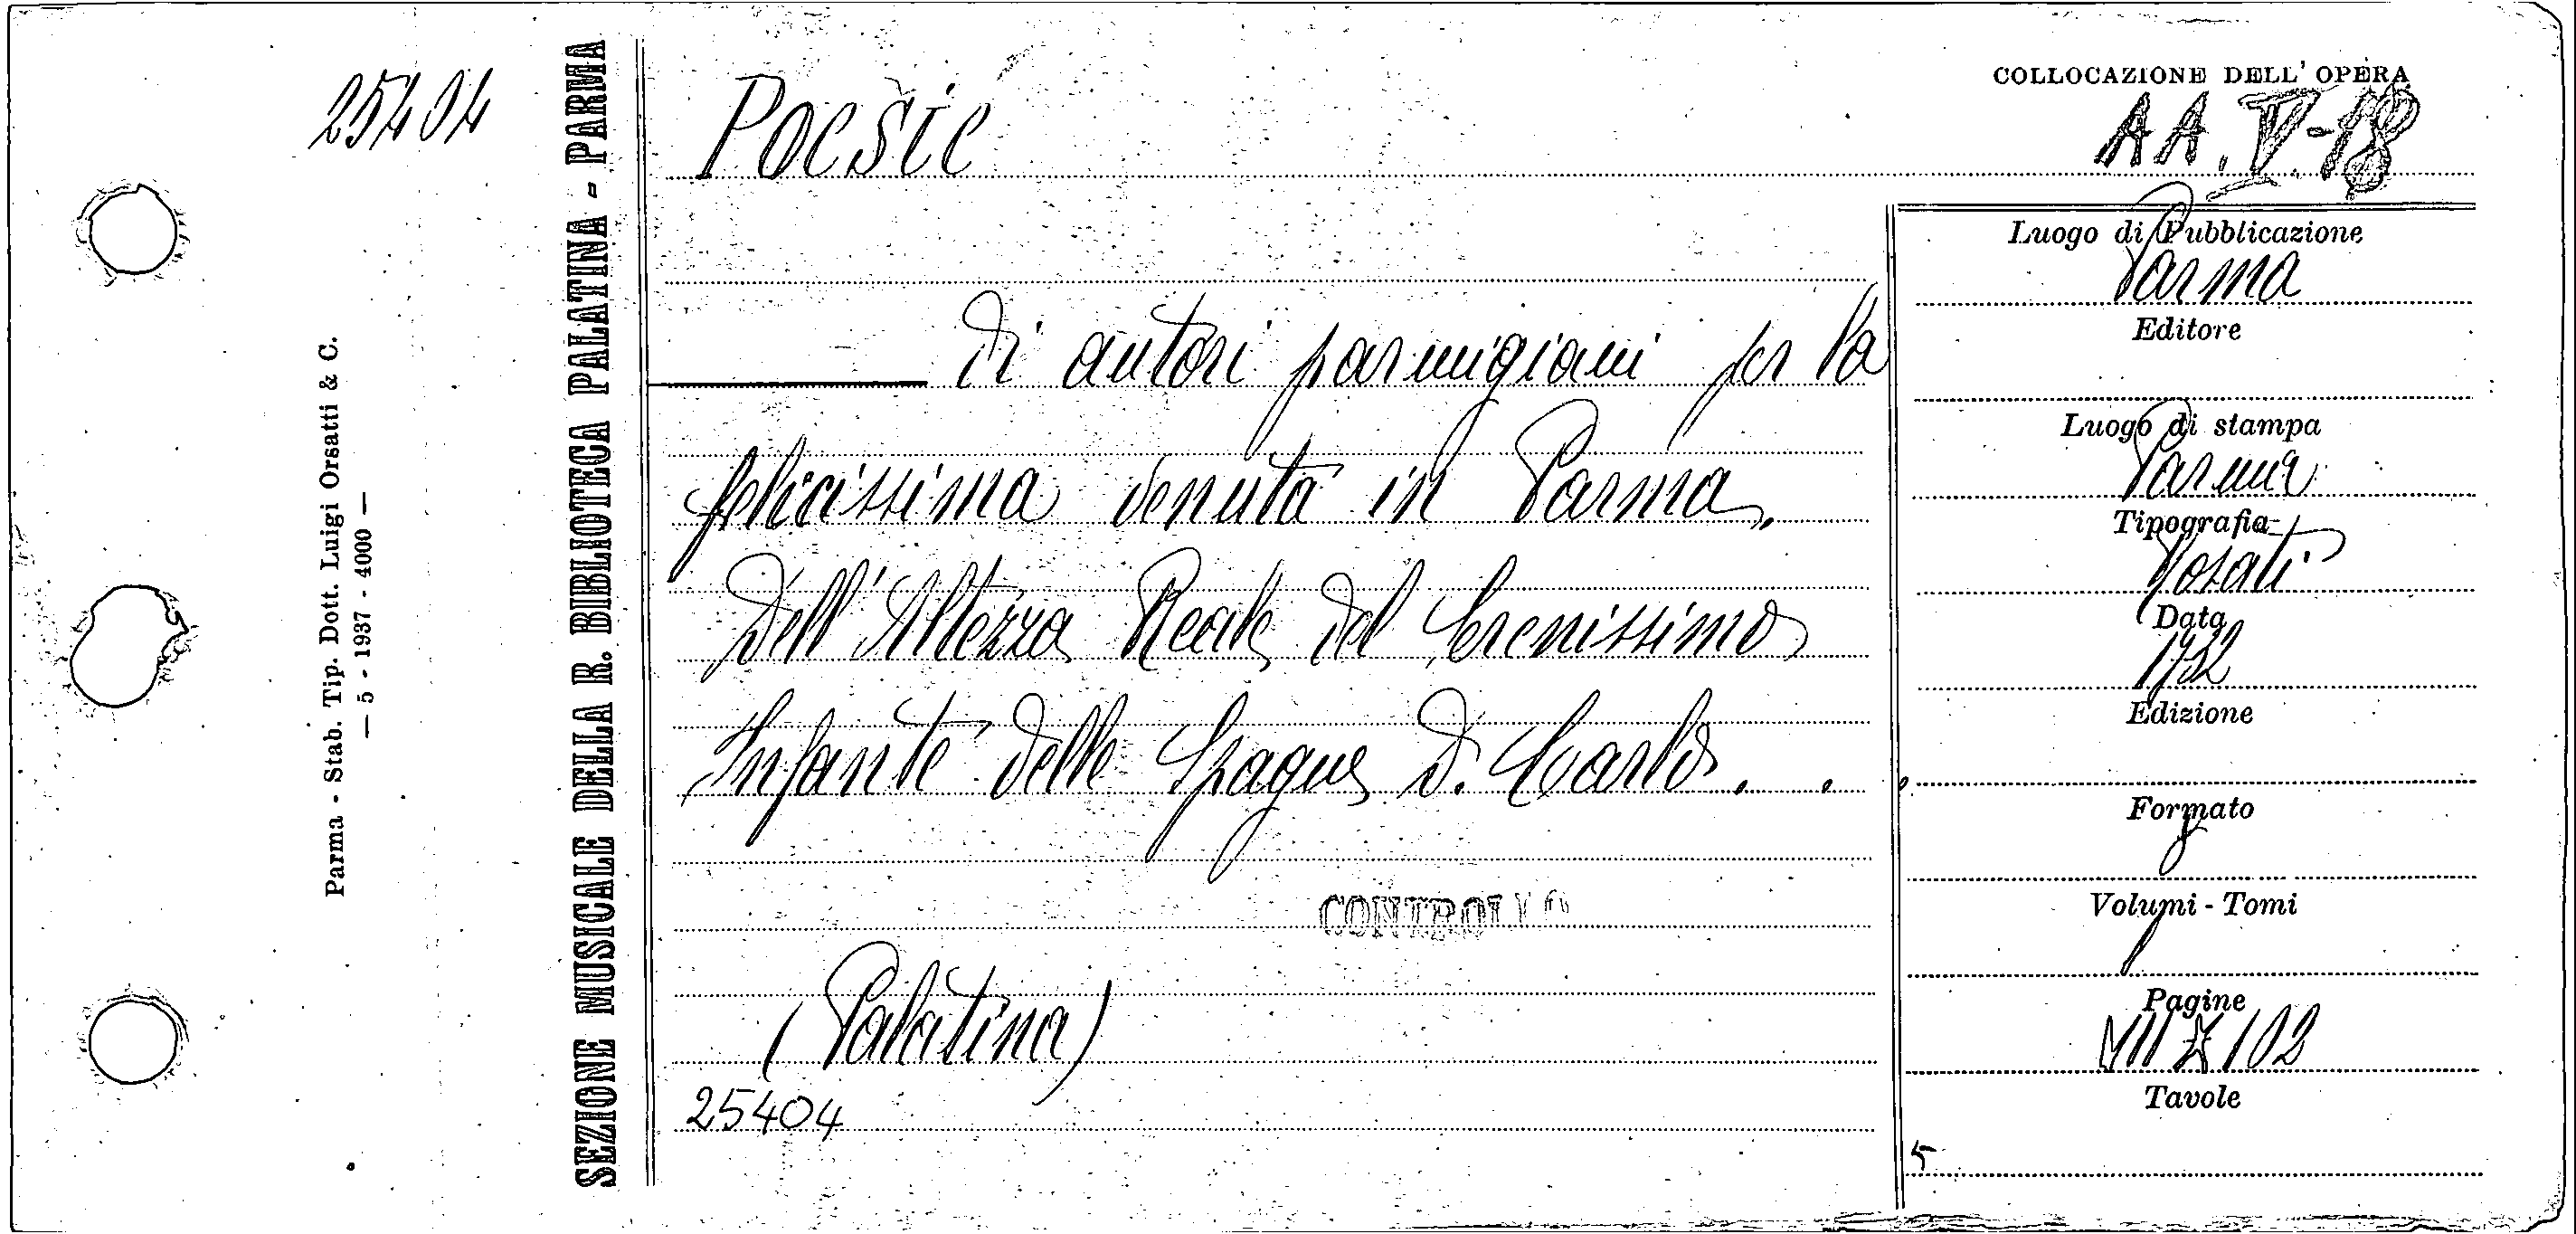 25404
Parma - Stab. Tip. Dott. Luigi Orsatti & C.
— 5 - 1937 - 4000 —
SEZIONE MUSICALE DELLA R. BIBLIOTECA PALATINA - PARMA
Poesie
di autori parmigiani per la
felicissima venuta in Parma
dell'Altezza Reale del Serenissimo
Infante delle Spagne D. Carlo . . .
CONTROLLO
(Palatina)
25404
COLLOCAZIONE DELL'OPERA
AA. V-18
Luogo di Pubblicazione
Parma
Editore
Luogo di stampa
Parma
Tipografia
Rosati
Data
1732
Edizione
Formato
Volumi - Tomi
Pagine
102
Tavole
5